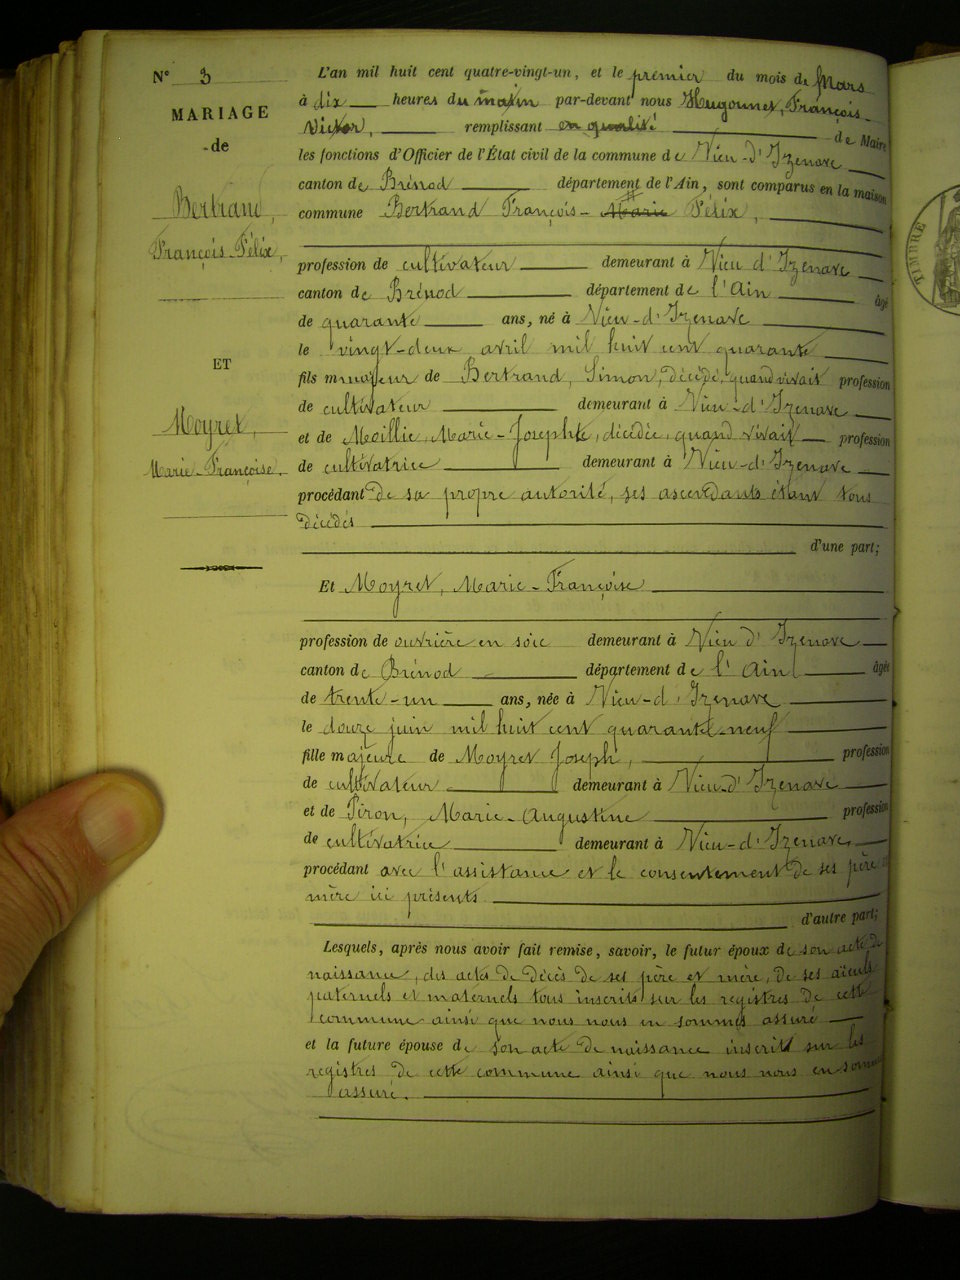 N° 3
MARIAGE
de
Bertrand,
François-Félix,
ET
Moyret,
Marie-Françoise.
L'an mil huit cent quatre-vingt-un, et le premier du mois de Mars
à dix heures du matin par-devant nous Hugonnet, François-
Victor, remplissant en qualité de Maire
les fonctions d'Officier de l'État civil de la commune de Vieu-d'Izenave
canton de Brénod département de l'Ain, sont comparus en la maison
commune Bertrand François- Marie Félix,
profession de cultivateur demeurant à Vieu d'Izenave
canton de Brénod département de l'Ain âgé
de quarante ans, né à Vieu-d'Izenave
le vingt-deux avril mil huit cent quarante
fils majeur de Bertrand, Simon, décédé, quand vivait profession
de cultivateur demeurant à Vieu-d'Izenave
et de Maillie, Marie-Josephte, décédée, quand vivait profession
de cultivatrice demeurant à Vieu-d'Izenave
procédant de sa propre autorité, ses ascendants étant tous
décédés
d'une part;
Et Moyret, Marie-Françoise
profession de ouvrière en soie demeurant à Vieu d'Izenave
canton de Brénod département de l'Ain âgée
de trente-un ans, née à Vieu-d'Izenave
le douze juin mil huit cent quarante-neuf
fille majeure de Moyret Joseph, profession
de cultivateur demeurant à Vieu-d'Izenave
et de Piron, Marie-Augustine profession
de cultivatrice demeurant à Vieu-d'Izenave,
procédant avec l'assistance et le consentement de ses père et
mère ici présents
d'autre part;
Lesquels, après nous avoir fait remise, savoir, le futur époux de son acte de
naissance, des actes de décès de ses père et mère, de ses aïeuls
paternels et maternels tous inscrits sur les registres de cette
commune ainsi que nous nous en sommes assuré
et la future épouse de son acte de naissance inscrit sur les
registres de cette commune ainsi que nous nous en sommes
assuré.
TIMBRE